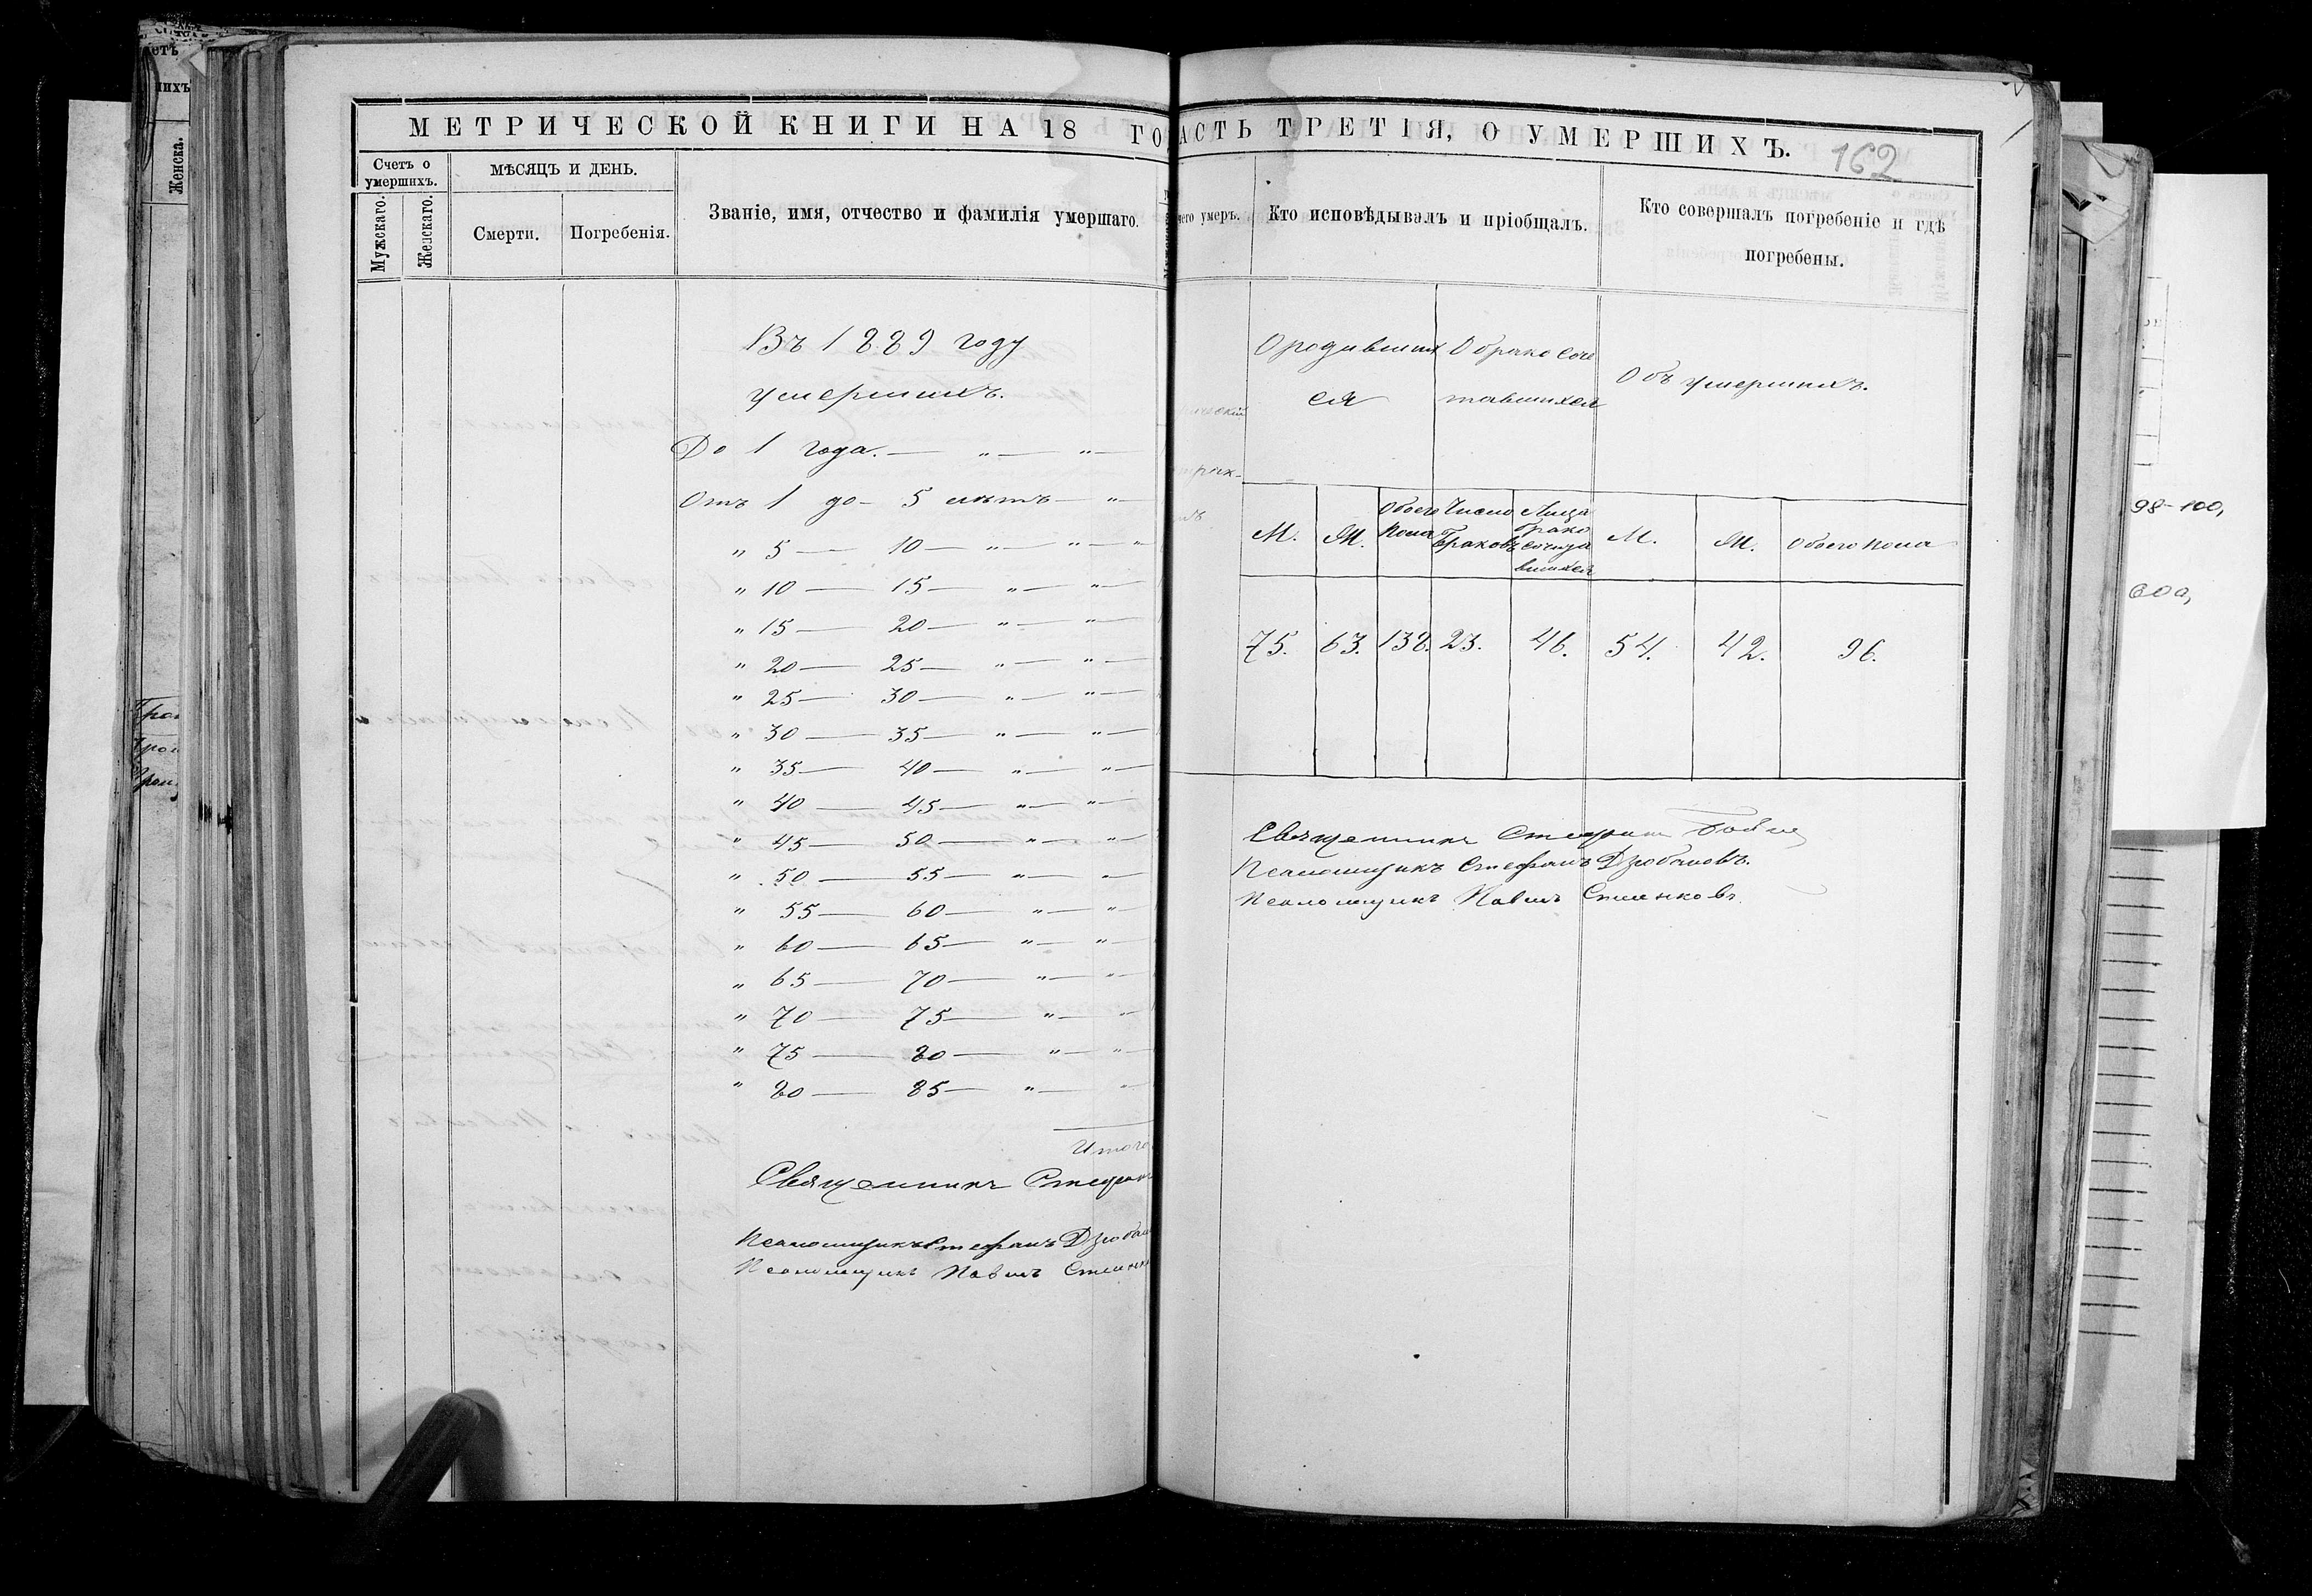 МЕТРИЧЕСКОЙ КНИГИ НА 18 ГО
Счетъ о умершихъ.
Мужскаго.
Женскаго.
МѢСЯЦЪ И ДЕНЬ.
Смерти.
Погребенія.
Званіе, имя, отчество и фамилія умершаго.
Въ 1889 году
умершихъ.
До 1 года. — " — " —
Отъ 1 до — 5 лѣтъ — " —
" 5 — 10 — " — " — "
" 10 — 15 — " — " —
" 15 — 20 — " — " —
" 20 — 25 — " — " —
" 25 — 30 — " — " —
" 30 — 35 — " — " —
" 35 — 40 — " — " —
" 40 — 45 — " — " —
" 45 — 50 — " — " —
" 50 — 55 — " — " —
" 55 — 60 — " — " —
" 60 — 65 — " — " —
" 65 — 70 — " — " —
" 70 — 75 — " — " —
" 75 — 80 — " — " —
" 80 — 85 — " — " —
Итого
Священникъ Стефанъ
Псаломщикъ Стефанъ Дзюбан
Псаломщикъ Павелъ
АСТЬ ТРЕТІЯ, О УМЕРШИХЪ.
162
чего умеръ.
Кто исповѣдывалъ и пріобщалъ.
Кто совершалъ погребеніе и гдѣ
погребены.
О родивших
ся
О бракосоче
тавшихся
Объ умершихъ.
М. Ж. Обоего пола
Число браковъ
Лица брако сочета вшихся
М. Ж. Обоего пола
75. 63. 138. 23. 46. 54. 42. 96.
Священникъ Стефанъ
Псаломщикъ Стефанъ Дзюбановъ.
Псаломщикъ Павелъ
98-100,
600,
ихъ
Женска.